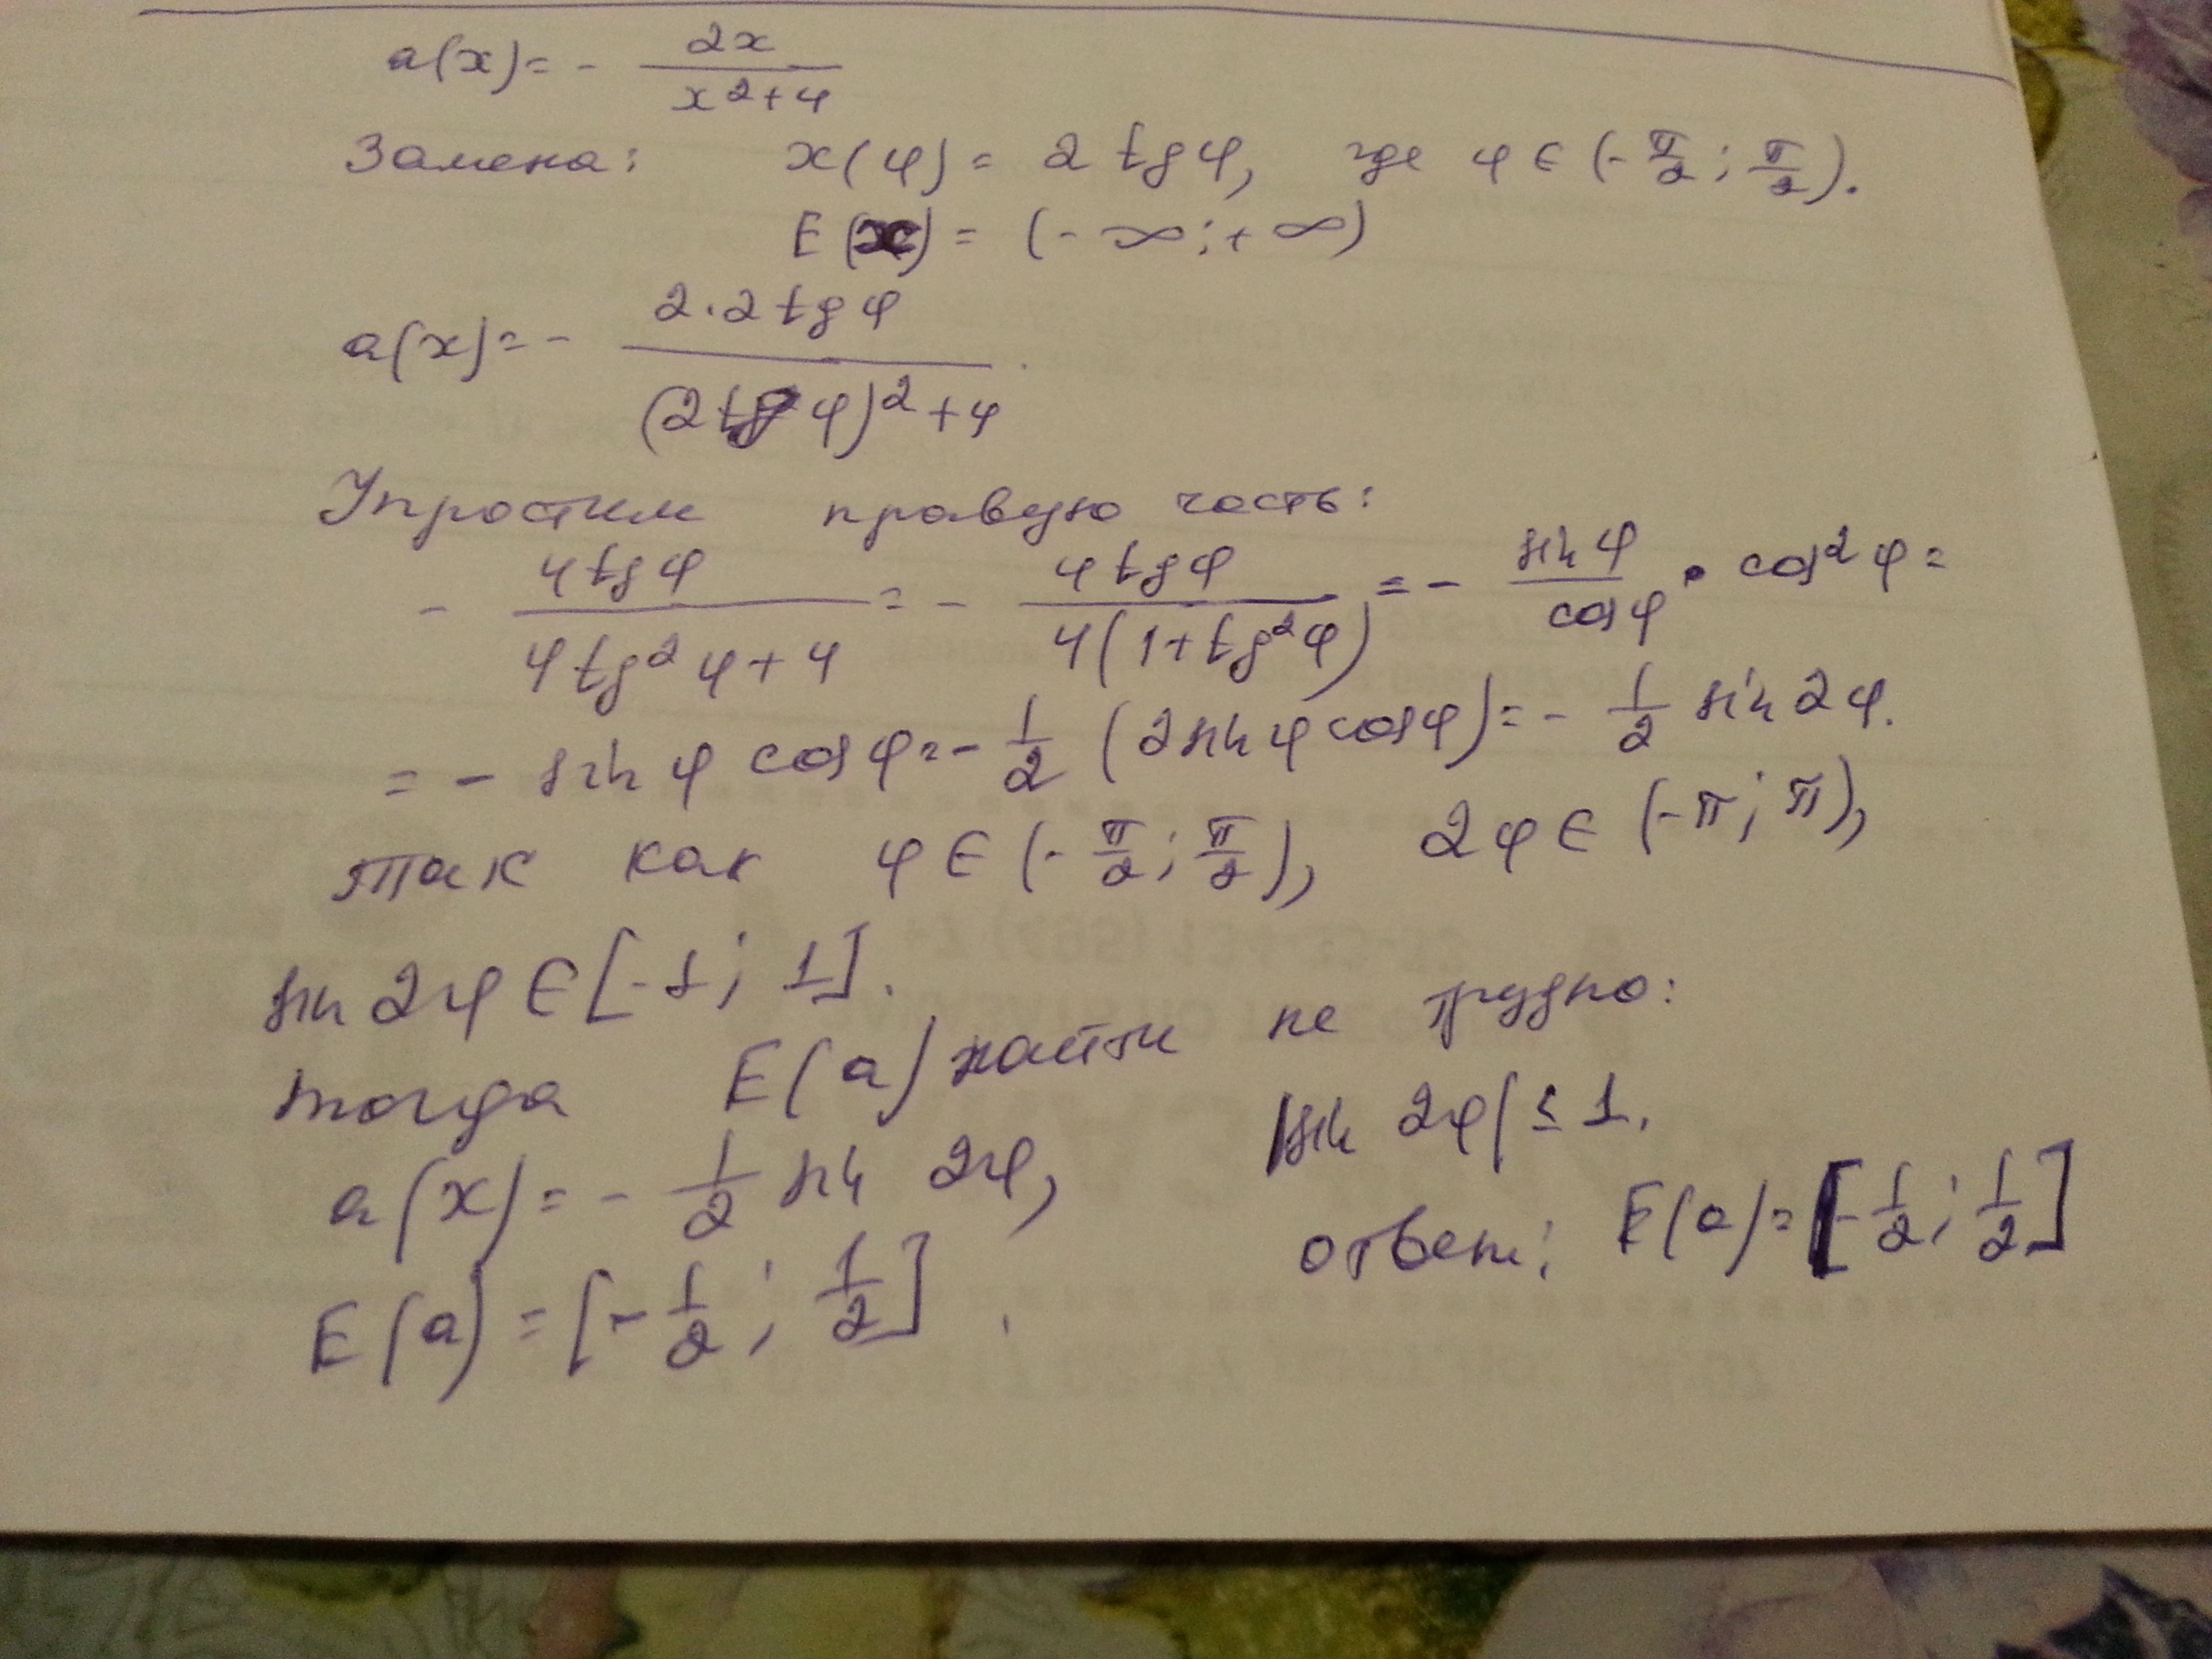 a(x) = - 2x / (x² + 4)
Замена: x(φ) = 2 tg φ, где φ ∈ (- π/2 ; π/2).
E(x) = (- ∞ ; + ∞)
a(x) = - 2 · 2 tg φ / ((2 tg φ)² + 4)
Упростим правую часть:
- 4 tg φ / (4 tg² φ + 4) = - 4 tg φ / (4(1 + tg² φ)) = - sin φ / cos φ · cos² φ =
= - sin φ cos φ = - 1/2 (2 sin φ cos φ) = - 1/2 sin 2φ.
так как φ ∈ (- π/2 ; π/2), 2φ ∈ (-π ; π),
sin 2φ ∈ [-1 ; 1].
тогда E(a) найти не трудно:
a(x) = - 1/2 sin 2φ, |sin 2φ| ≤ 1.
E(a) = [- 1/2 ; 1/2]. ответ: E(a) = [- 1/2 ; 1/2]